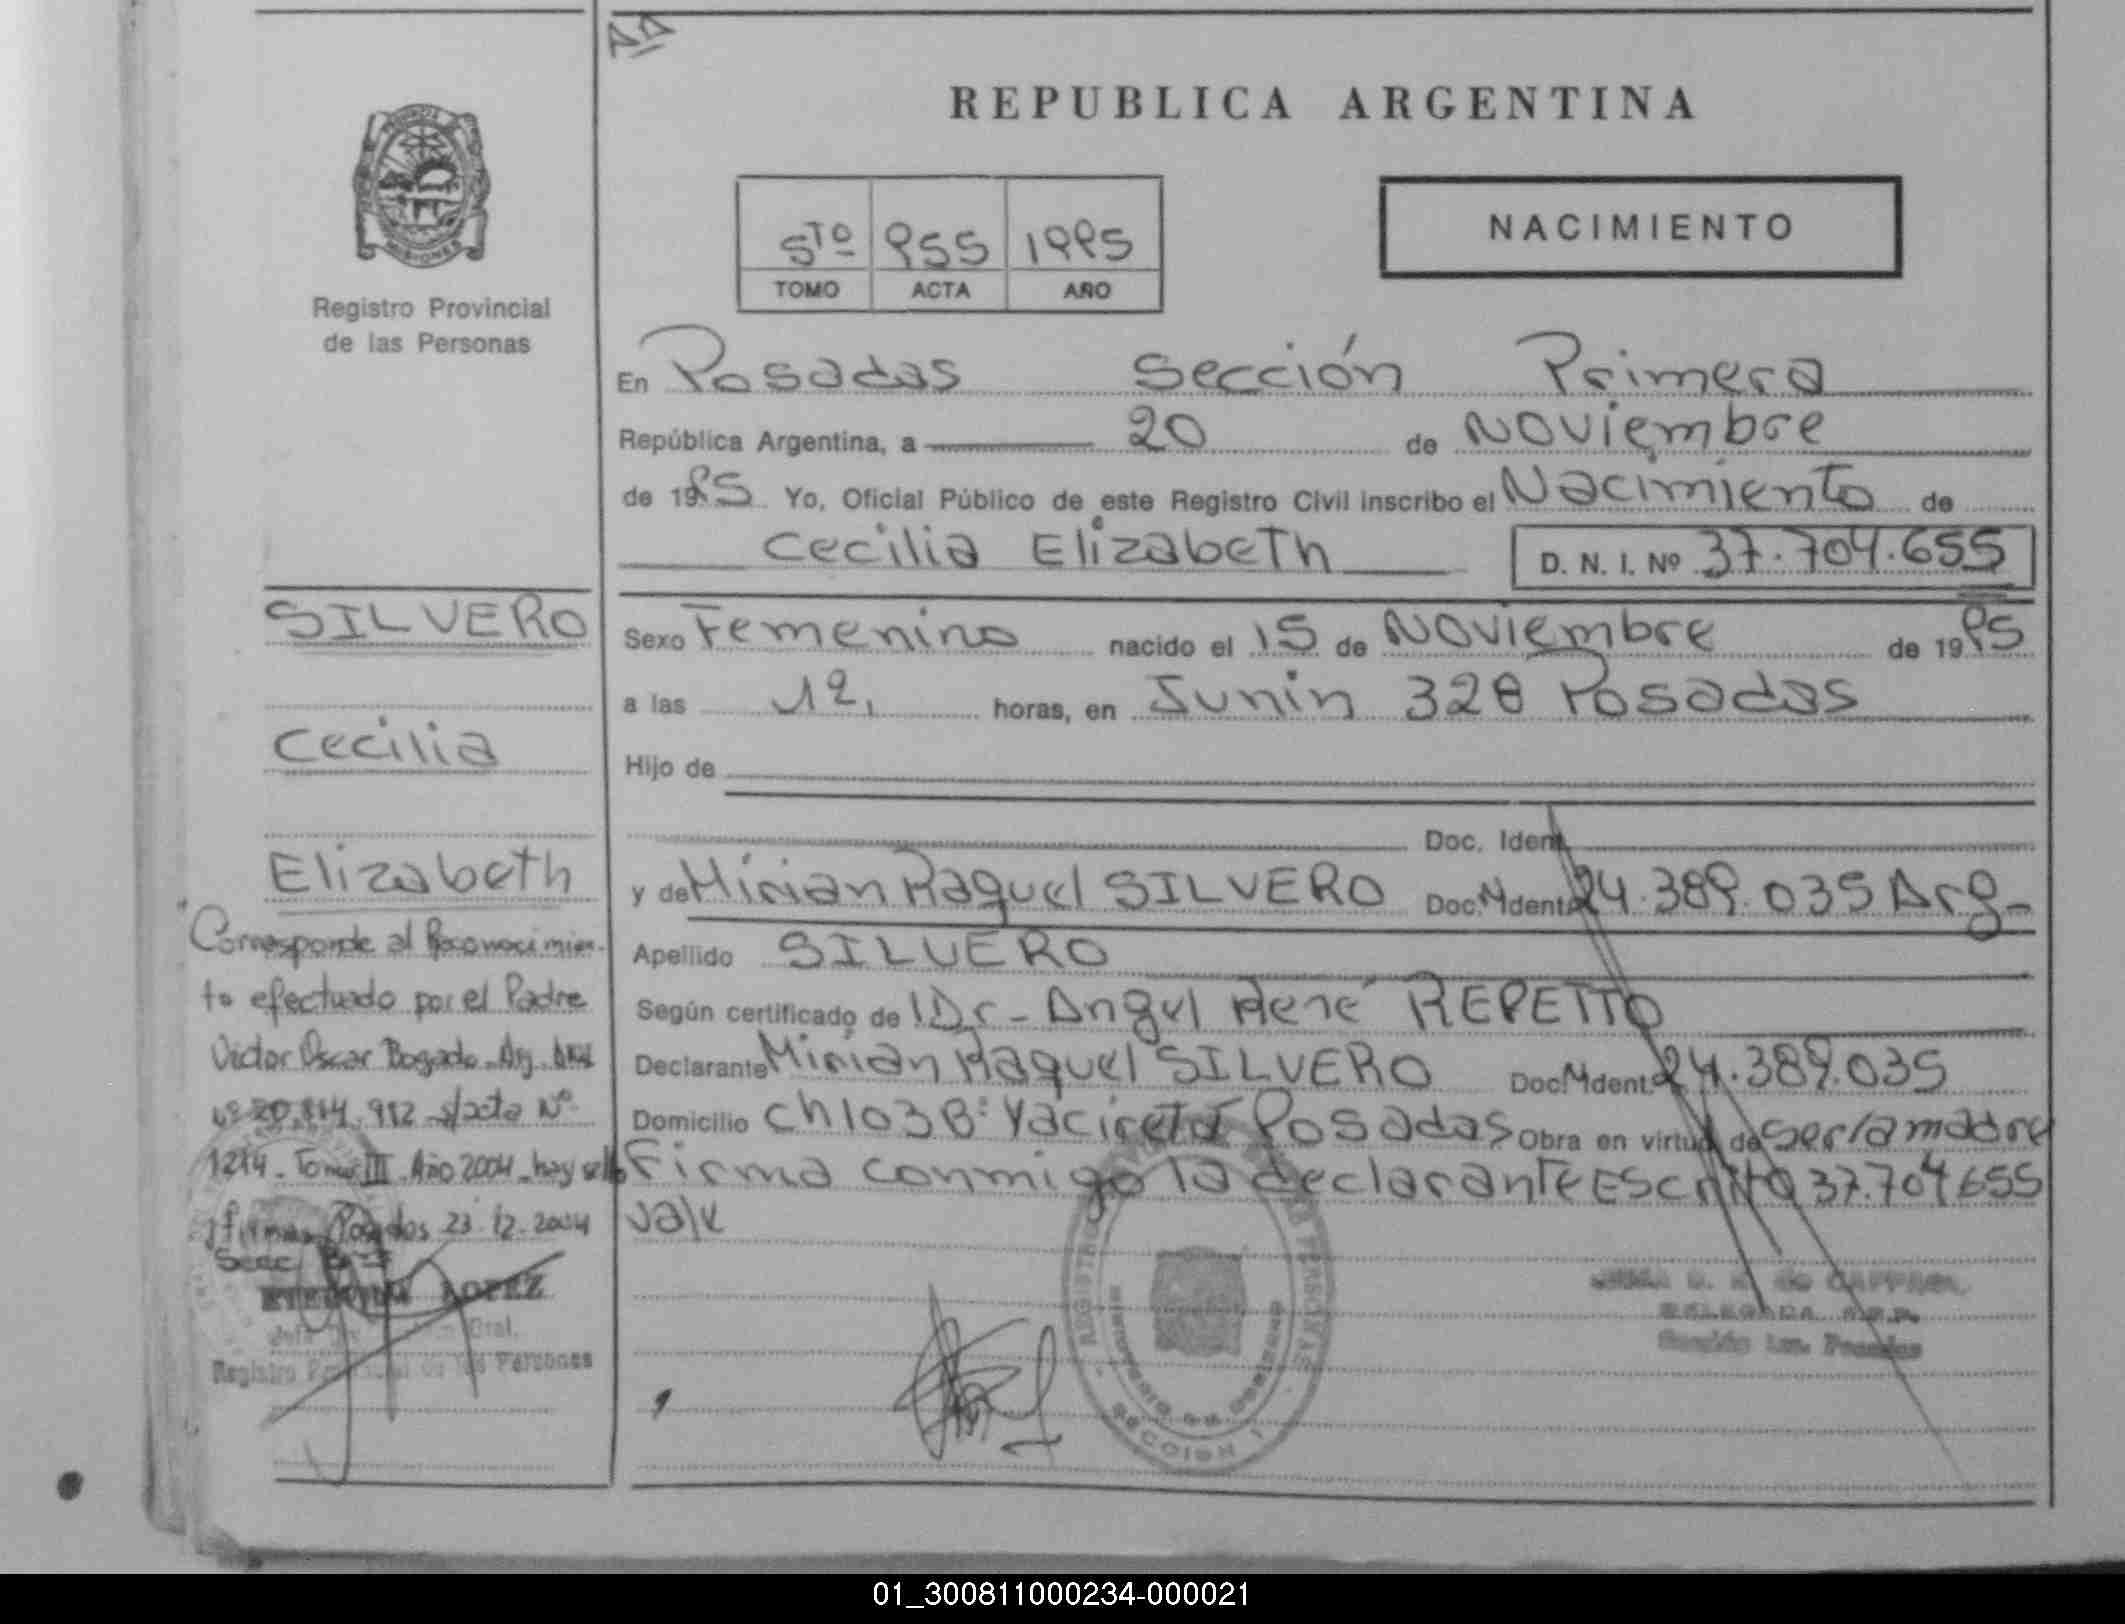 REPUBLICA ARGENTINA
NACIMIENTO
5to 955 1995
TOMO ACTA AÑO
Registro Provincial
de las Personas
En Posadas Sección Primera
República Argentina, a 20 de Noviembre
de 1995 Yo, Oficial Público de este Registro Civil inscribo el Nacimiento de
Cecilia Elizabeth D. N. I. Nº 37.704.655
Sexo Femenino nacido el 15 de Noviembre de 1995
a las 12, horas, en Junin 328 Posadas
Hijo de
Doc. Ident.
y de Mirian Raquel SILVERO Doc. Ident. 24.389.035 Arg_
Apellido SILVERO
Según certificado de Dr- Angel René REPETTO
Declarante Mirian Raquel SILVERO Doc. Ident. 24.389.035
Domicilio Ch 103 Bº Yacireta Posadas Obra en virtud de ser la madre
Firma conmigo la declarante Escrito 37.704.655
vale
SILVERO
Cecilia
Elizabeth
Corresponde al Reconocimien-
to efectuado por el Padre
Victor Oscar Bogado. Arg. DNI
Nº s/acta Nº
1214 - Tomo III - Año 2004 - hay sello
y firmas Posadas 23-12-2004
Secc
LOPEZ
Gral.
Registro Provincial de las Personas
DELEGADA
Sección 1ra. Posadas
SECCION 1
01_300811000234-000021